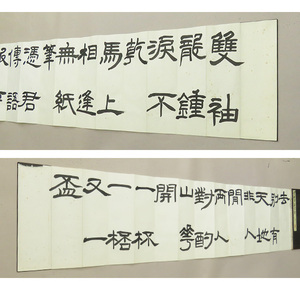 雙袖
龍鍾
淚不
乾
馬上
相逢
無紙
筆
憑君
傳語
去
別有
天地
非人
間
兩人
對酌
山
開
一杯
一桮
又一
盃